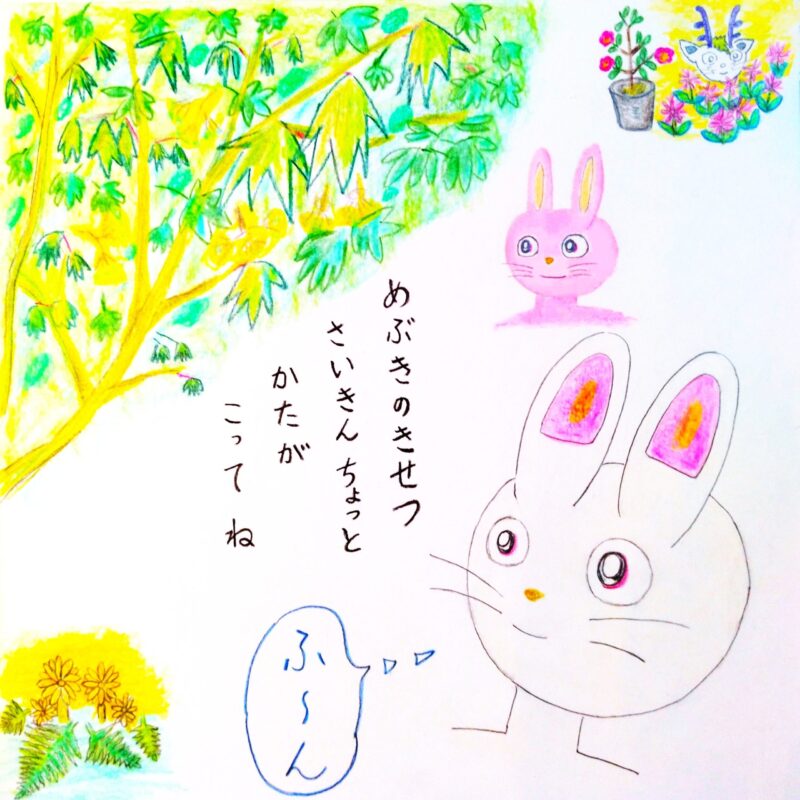 めぶきのきせつ
さいきん ちょっと
かたが
こって ね
ふ〜ん